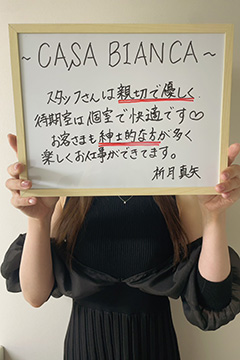 ~CASA BIANCA~
スタッフさんは親切で優しく
待期室は個室で快適です♡
お客さまも紳士的な方が多く
楽しくお仕事ができてます。
祈月真矢